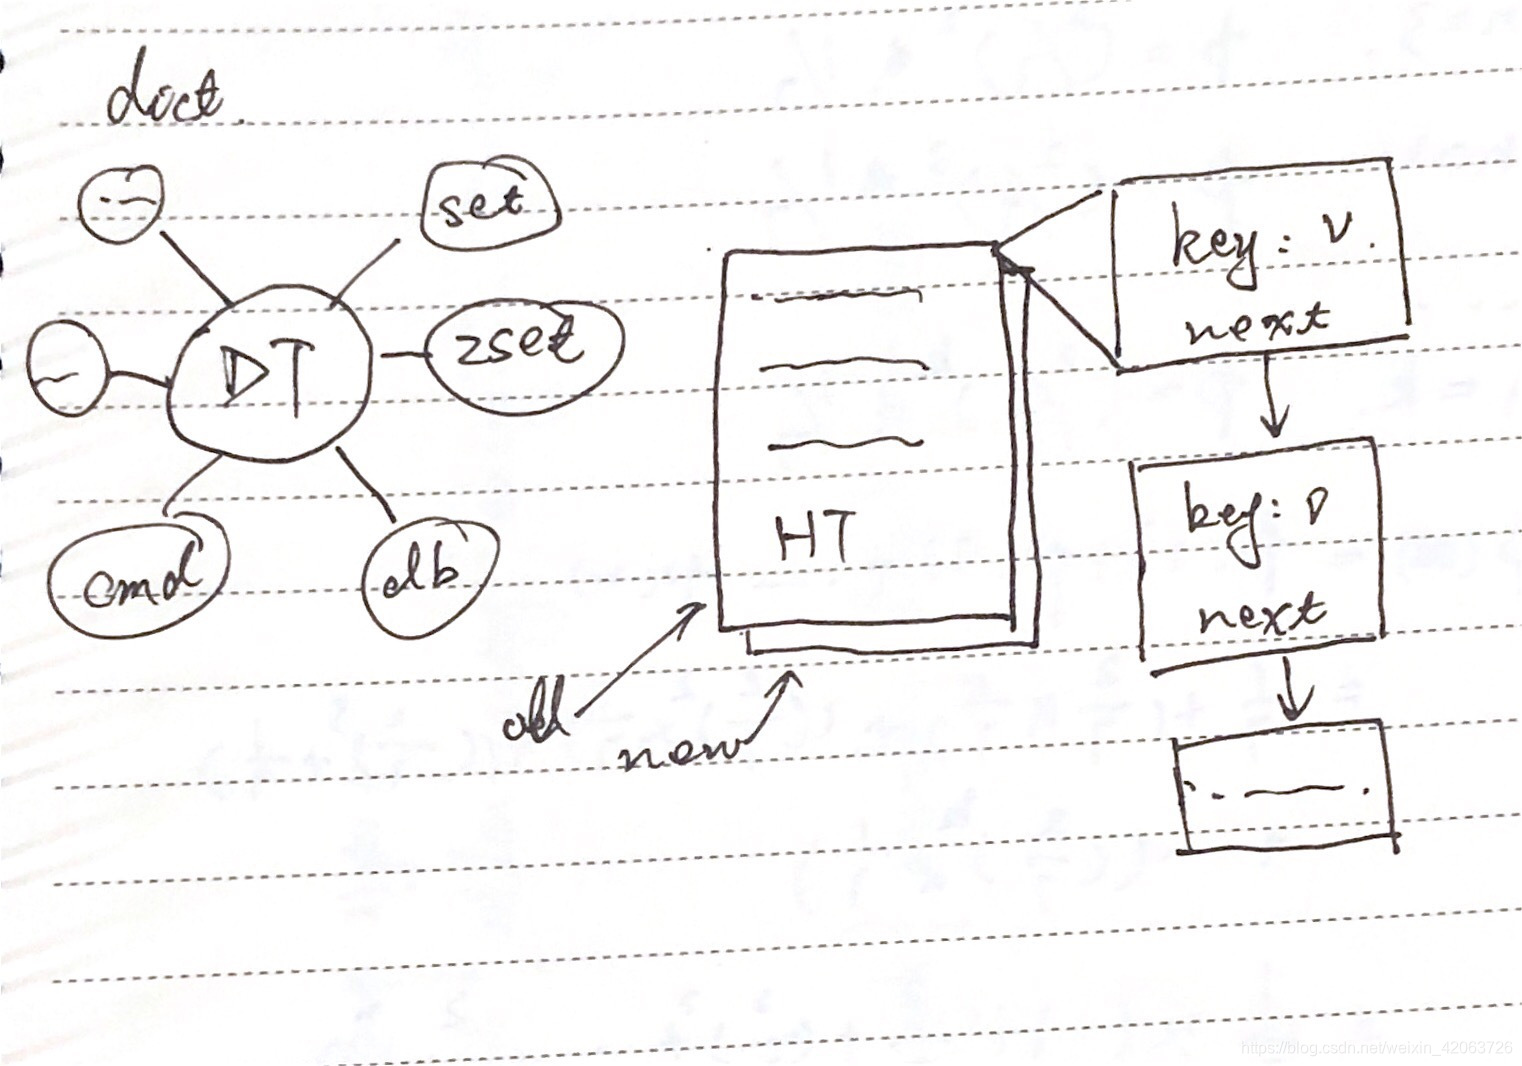 dict.
set
DT
zset
cmd
db
HT
old
new
key: V.
next
key: V
next
https://blog.csdn.net/weixin_42063726